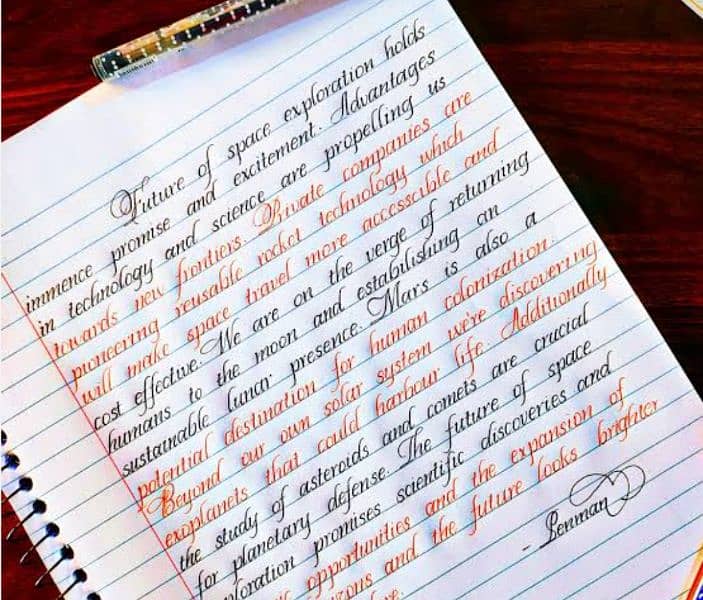 Future of space exploration holds
immence promise and excitement. Advantages
in technology and science are propelling us
towards new frontiers. Private companies are
pioneering reusable rocket technology which
will make space travel more accesscible and
cost effective. We are on the verge of returning
humans to the moon and estabilishing an
sustainable lunar presence. Mars is also a
potential destination for human colonization.
Beyond our own solar system we're discovering
exoplanets that could harbour life. Additionally
the study of asteroids and comets are crucial
for planetary defense. The future of space
ploration promises scientific discoveries and
ic opportunities and the expansion of
izons and the future looks brighter
- Penman